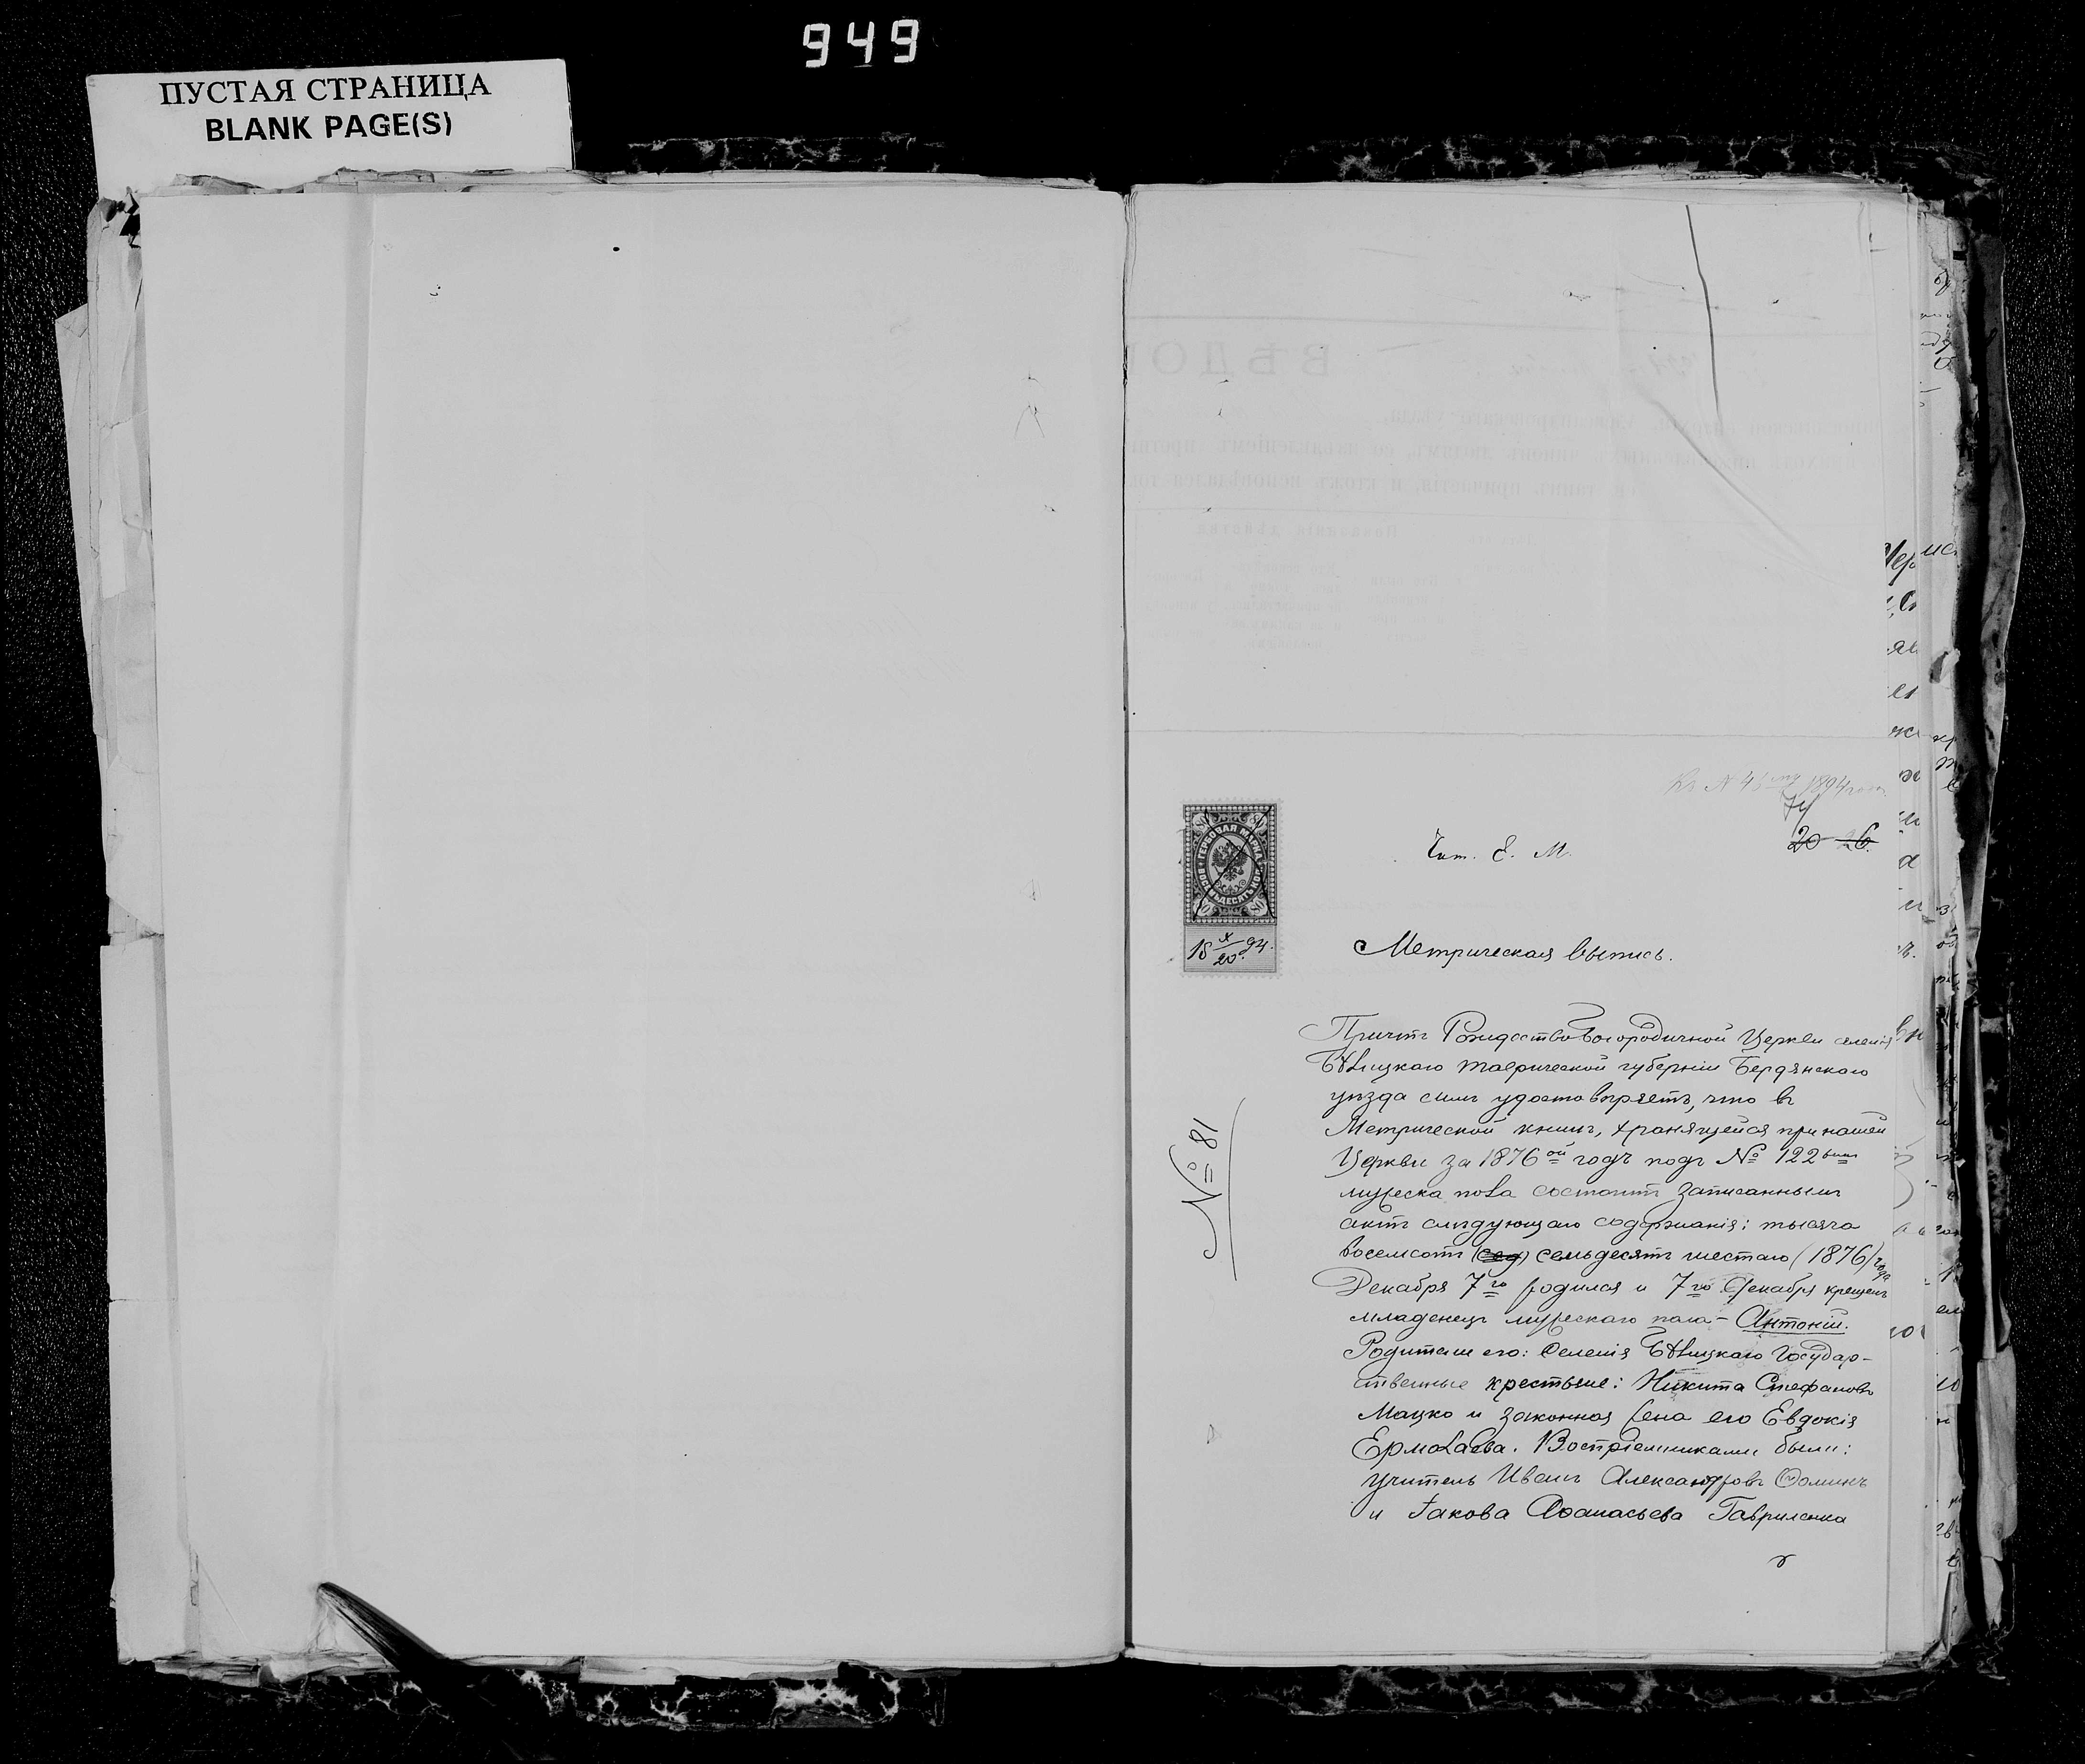 949
ПУСТАЯ СТРАНИЦА
BLANK PAGE(S)
74
20 26
Чит. Е. М.
ГЕРБОВАЯ МАРКА
ВОСЕМЬДЕСЯТЪ КОП
80
18 X/20 94.
Метрическая выпись.
№ 81
Причтъ Рождество-Богородичной Церкви селенія
Бѣлицкаго Таврической губерніи Бердянскаго
уѣзда симъ удостовѣряетъ, что въ
Метрической книгѣ, хранящейся при нашей
Церкви за 1876ой годъ подъ № 122
мужеска пола состоитъ записаннымъ
актъ слѣдующаго содержанія: тысяча
восемсотъ (сед) семьдесятъ шестаго (1876) года
Декабря 7го родился и 7го Декабря крещенъ
младенецъ мужескаго пола – Антоній.
Родители его: Селенія Бѣлицкаго Государ-
ственные крестьяне: Никита Стефановъ
Мацко и законная жена его Евдокія
Ермолаева. Воспріемниками были:
учитель Иванъ Александровъ Ѳоминъ
и Іакова Аѳанасьева Гавриленка